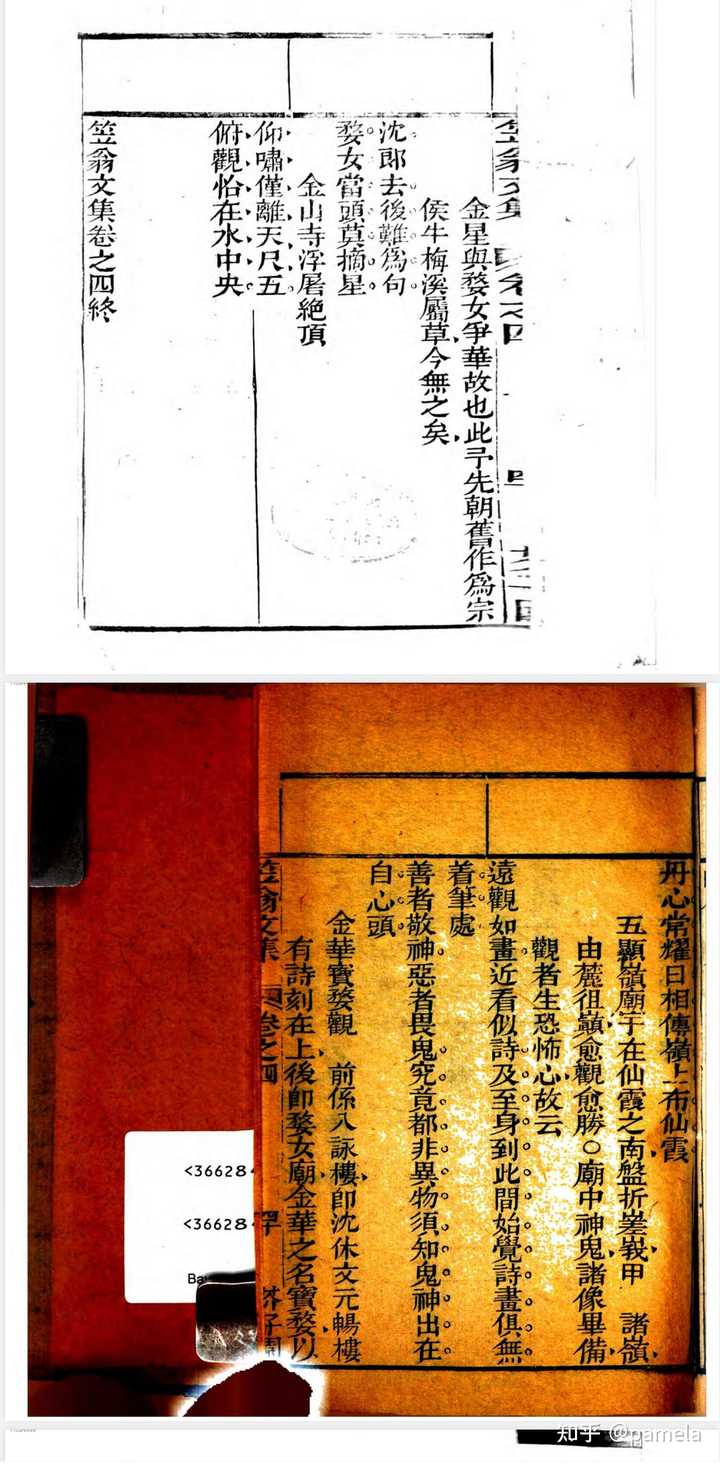 笠翁文集 卷之四
金星與婺女爭華故也此予先朝舊作爲宗
侯牛梅溪屬草今無之矣
沈郎去後難爲句
婺女當頭莫摘星
金山寺浮屠絕頂
仰嘯僅離天尺五
俯觀恰在水中央
笠翁文集卷之四終
丹心常耀日相傳嶺上布仙霞
五顯嶺廟宇在仙霞之南盤折差峩甲 諸嶺
由麓徂巔愈觀愈勝○廟中神鬼諸像畢備
觀者生恐怖心故云
遠觀如畫近看似詩及至身到此間始覺詩畫俱無
着筆處
善者敬神惡者畏鬼究竟都非異物須知鬼神出在
自心頭
金華寶婺觀 前係八詠樓卽沈休文元暢樓
有詩刻在上後卽婺女廟金華之名寶婺以
笠翁文集 卷之四 芥子園
<36628
<36628
知乎 @pamela